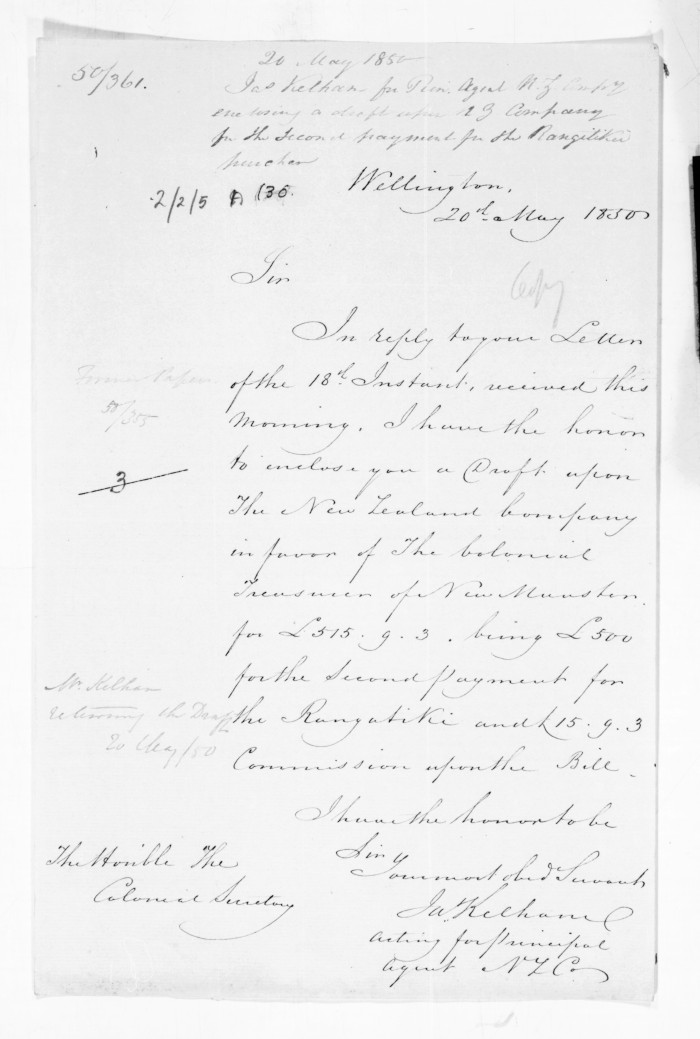 20 May 1850
50/361.
Jas Kelham for Prin. Agent N.Z. Compy
enclosing a draft upon N Z Company
for the Second payment for the Rangitikei
purchase
2/2/5 A 136.
Wellington,
20th May 1850
Sir
Copy
In reply to your Letter
of the 18th Instant, received this
Morning, I have the honor
to enclose you a Draft upon
The New Zealand Company
in favor of The Colonial
Treasurer of New Munster
for £515.9.3. being £500
for the Second Payment for
the Rangatiki and £15.9.3
Commission upon the Bill.
Former Papers
50/355
3
Mr. Kelham
returning the Draft
20 May/50
I have the honor to be
Sir
Your most obedt Servant
Jas Kelham
Acting for Principal
Agent N Z Co
The Honble The
Colonial Secretary